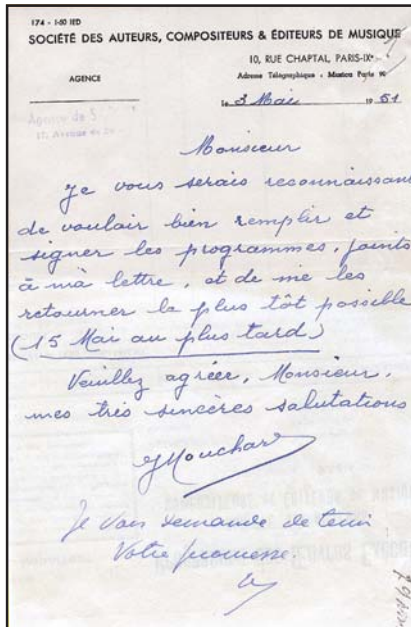 174 - 1-50 IED
SOCIÉTÉ DES AUTEURS, COMPOSITEURS & ÉDITEURS DE MUSIQUE
10, RUE CHAPTAL, PARIS-IXe
AGENCE
Adresse Télégraphique : Musica Paris 90
Agence de S
17, Avenue de
le 3 Mai 1951
Monsieur
Je vous serais reconnaissant
de vouloir bien remplir et
signer les programmes, joints
à ma lettre, et de me les
retourner le plus tôt possible
(15 Mai au plus tard)
Veuillez agréer, Monsieur,
mes très sincères salutations
Je vous demande de tenir
Votre promesse.